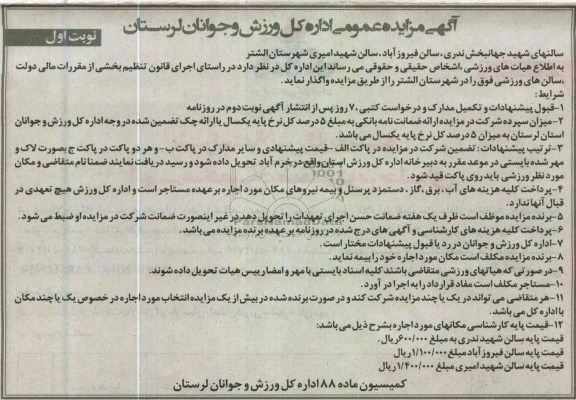 آگهی مزایده عمومی اداره کل ورزش و جوانان لرستان
نوبت اول
سالنهای شهید جهانبخش ندری، سالن فیروز آباد، سالن شهید امیری شهرستان الشتر
به اطلاع هیات های ورزشی، اشخاص حقیقی و حقوقی می رساند این اداره کل در نظر دارد در راستای اجرای قانون تنظیم بخشی از مقررات مالی دولت
، سالن های ورزشی فوق را در شهرستان الشتر را از طریق مزایده واگذار نماید.
شرایط:
۱-قبول پیشنهادات و تکمیل مدارک و درخواست کتبی ۷۰ روز پس از انتشار آگهی نوبت دوم در روزنامه
۲-میزان سپرده شرکت در مزایده ارائه ضمانت نامه بانکی به مبلغ ۵ درصد کل نرخ پایه یکسال یا ارائه چک تضمین شده در وجه اداره کل ورزش و جوانان
استان لرستان به میزان ۵ درصد کل نرخ پایه یکسال می باشد.
۳-ترتیب پیشنهادات : تضمین شرکت در مزایده در پاکت الف -قیمت پیشنهادی و سایر مدارک در پاکت ب- و هر دو پاکت در پاکت ج بصورت لاک و
مهر شده بایستی در موعد مقرر به دبیرخانه اداره کل ورزش استان واقع در خرم آباد تحویل داده شود و رسید دریافت نمایند ضمنا نام متقاضی و مکان
مورد نظر ورزشی باید روی پاکت قید شود.
۴-پرداخت کلیه هزینه های آب، برق، گاز، دستمزد پرسنل و بیمه نیروهای مکان مورد اجاره بر عهده مستاجر است و اداره کل ورزش هیچ تعهدی در
قبال آنها ندارد.
۵-برنده مزایده موظف است ظرف یک هفته ضمانت حسن اجرای تعهدات را تحویل دهد در غیر اینصورت ضمانت شرکت در مزایده او ضبط می شود.
۶-پرداخت کلیه هزینه های کارشناسی و آگهی های درج شده در روزنامه بر عهده برنده مزایده می باشد.
۷-اداره کل ورزش و جوانان در رد یا قبول پیشنهادات مختار است.
۸-برنده مزایده مکلف است مکان مورد اجاره خود را بیمه نماید.
۹-در صورتی که هیاتهای ورزشی متقاضی باشند کلیه اسناد بایستی با مهر و امضار ییس هیات تحویل داده شوند.
۱۰-مستاجر مکلف است مفاد قرارداد را به اجرا در آورد.
۱۱-هر متقاضی می تواند در یک یا چند مزایده شرکت کند و در صورت برنده شده در بیش از یک مزایده انتخاب مورد اجاره در خصوص یک یا چند مکان
با اداره کل می باشد.
۱۲-قیمت پایه کارشناسی مکانهای مورد اجاره بشرح ذیل می باشد:
قیمت پایه سالن شهید ندری به مبلغ ۶۰۰/۰۰۰ ریال.
قیمت پایه سالن فیروز آباد مبلغ ۱/۱۰۰/۰۰۰ ریال
قیمت پایه سالن شهید امیری مبلغ ۱/۴۰۰/۰۰۰ ریال
کمیسیون ماده ۸۸ اداره کل ورزش و جوانان لرستان